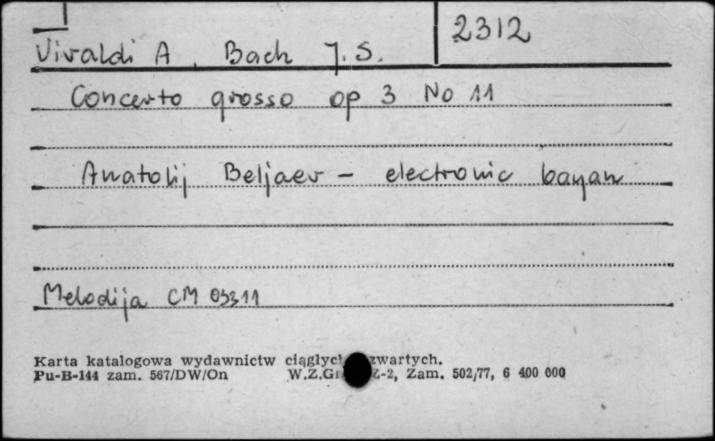 2312
Vivaldi A, Bach J.S.
Concerto grosso op 3 No 11
Anatolij Beljaev - electronic bayan
Melodija CM 03311
Karta katalogowa wydawnictw zwartych.
Pu-B-144 zam. 567/DW/On Zam. 502/77, 6 400 000